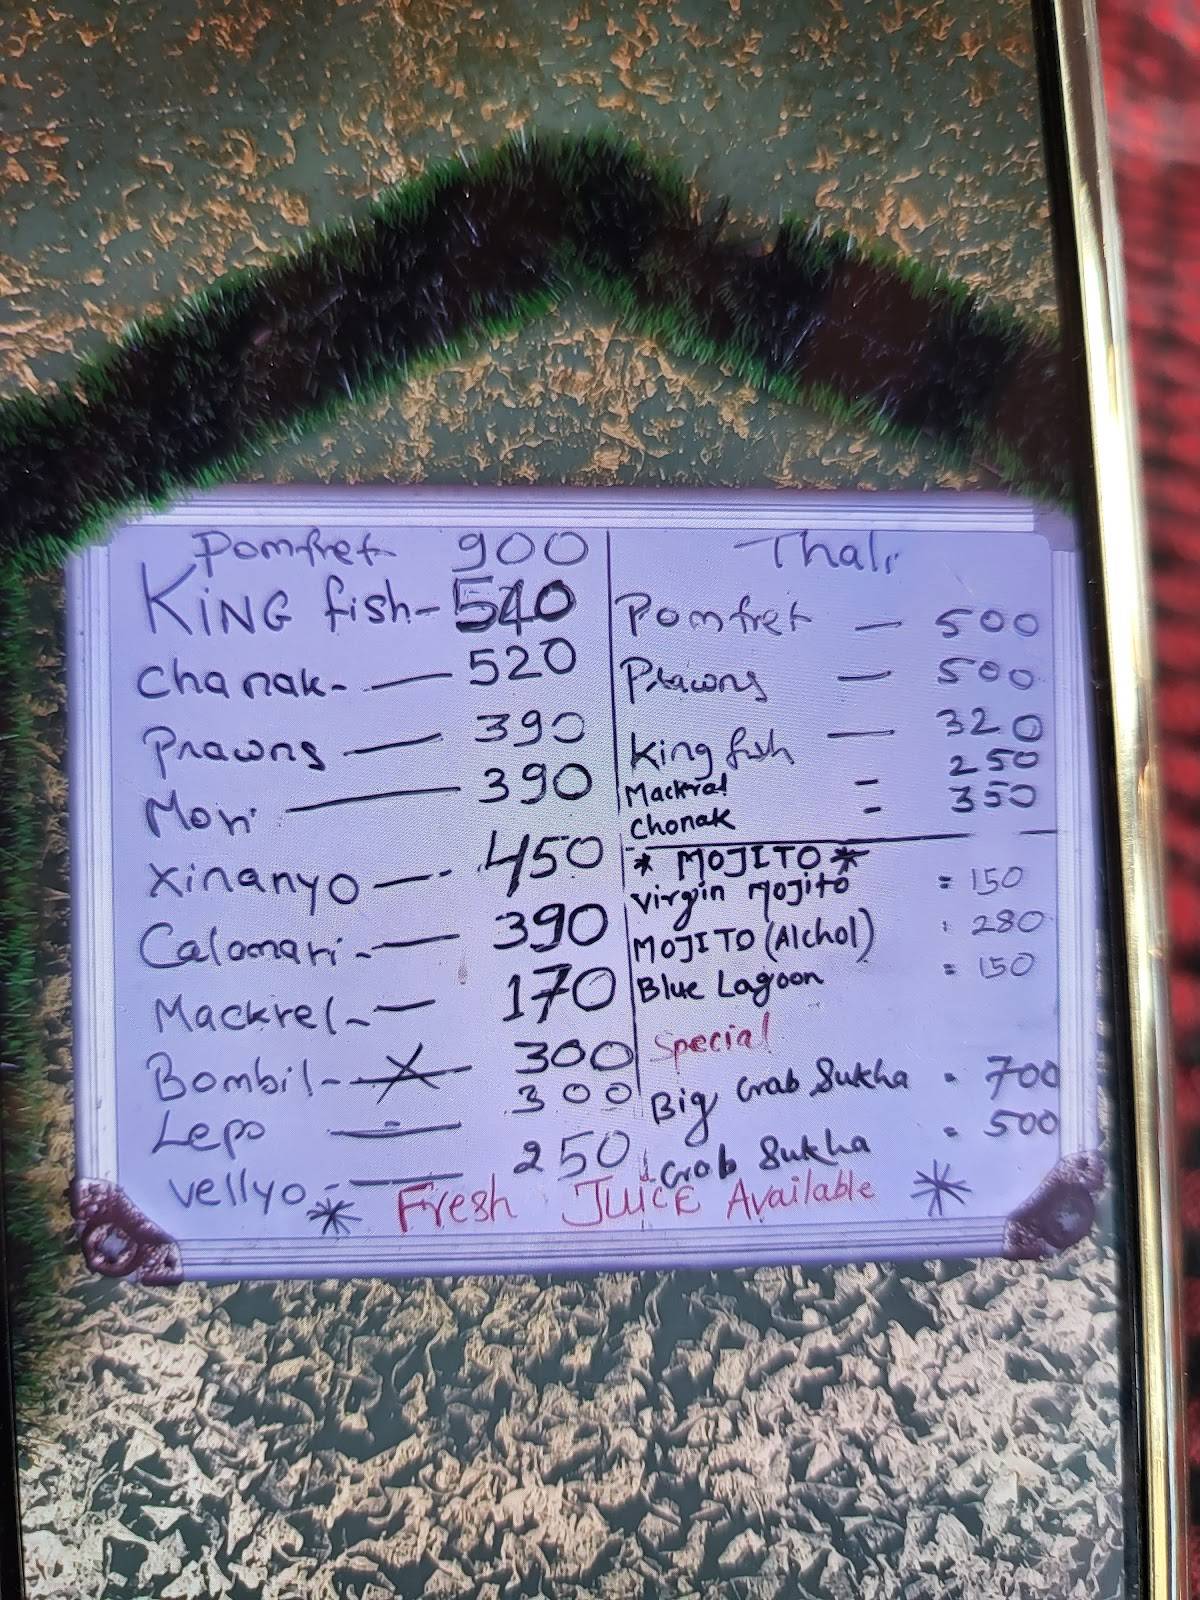 Pomfret 900
KING fish - 540
Chanak - — 520
Prawns — 390
Mori — 390
Xinanyo — 450
Calamari - — 390
Mackrel - — 170
Bombil - — 300
Lepo — 300
Vellyo - — 250
Thali
Pomfret — 500
Prawns — 500
King fish — 320
Mackrel - 250
Chonak - 350
* MOJITO *
Virgin Mojito = 150
MOJITO (Alchol) : 280
Blue Lagoon = 150
Special
Big Crab Sukha - 700
Crab Sukha - 500
* Fresh JUICE Available *